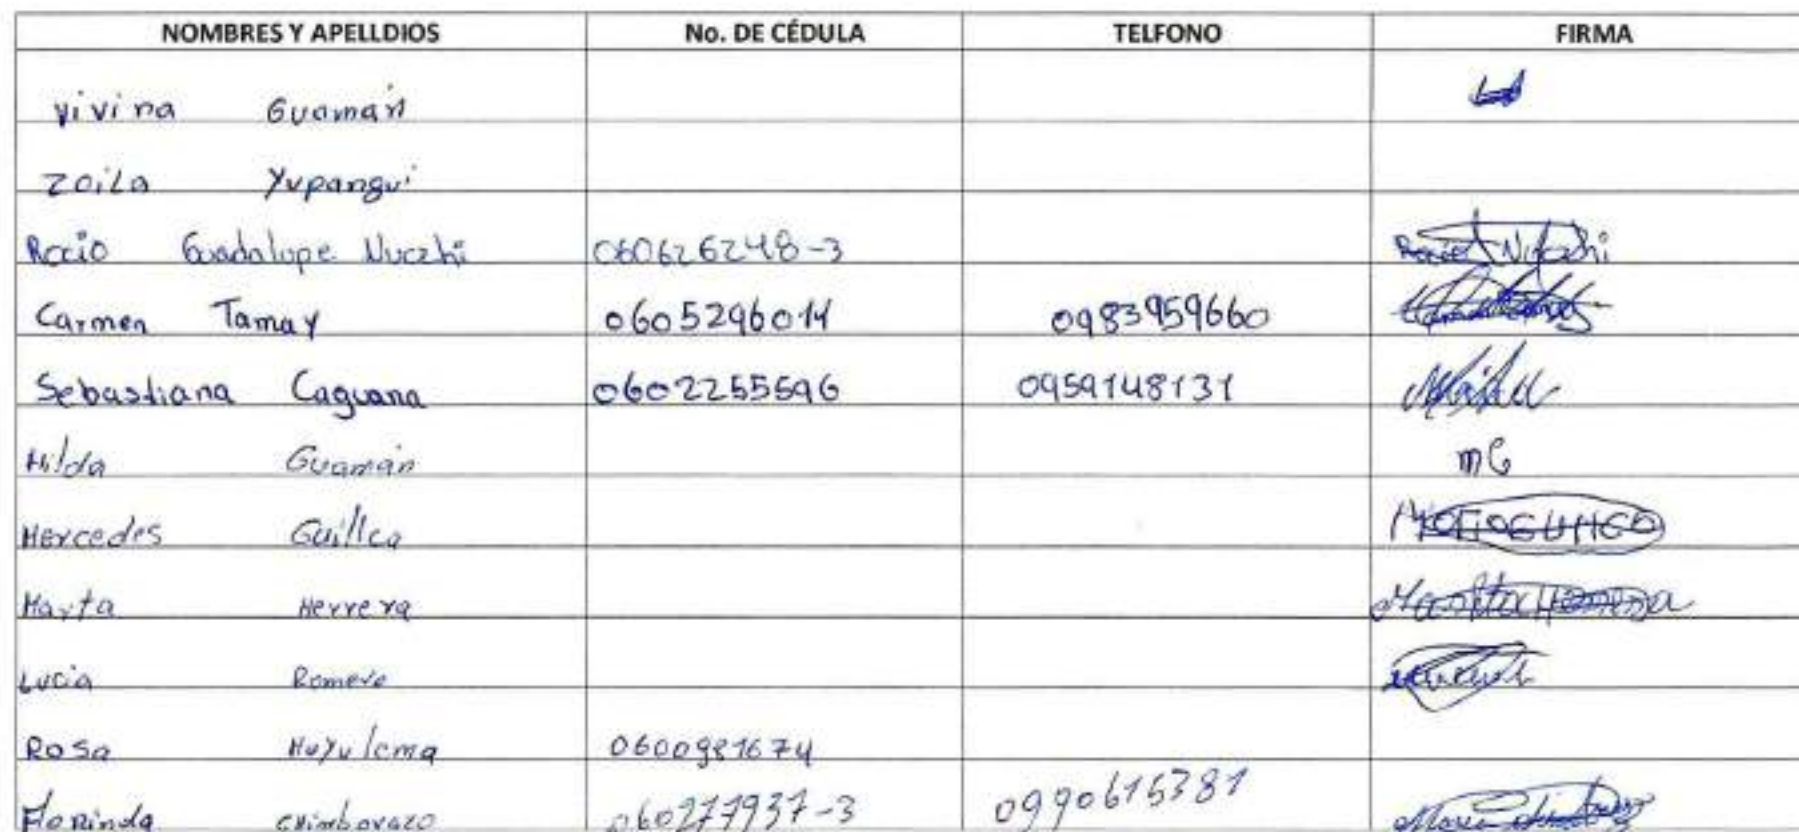 NOMBRES Y APELLDIOS No. DE CÉDULA TELFONO FIRMA
Vivina Guamán
Zoila Yupangui
Rocio Guadalupe Nuczhi 060626248-3 Rocio
Carmen Tamay 0605296014 0983959660
Sebastiana Caguana 0602255596 0959148131
Hilda Guamán mG
Mercedes Guillca
Marta Herrera Marta Herrera
Lucia Romero
Rosa Muyulema 0600981674
Florinda Chimborazo 060277937-3 0990615381 Maria